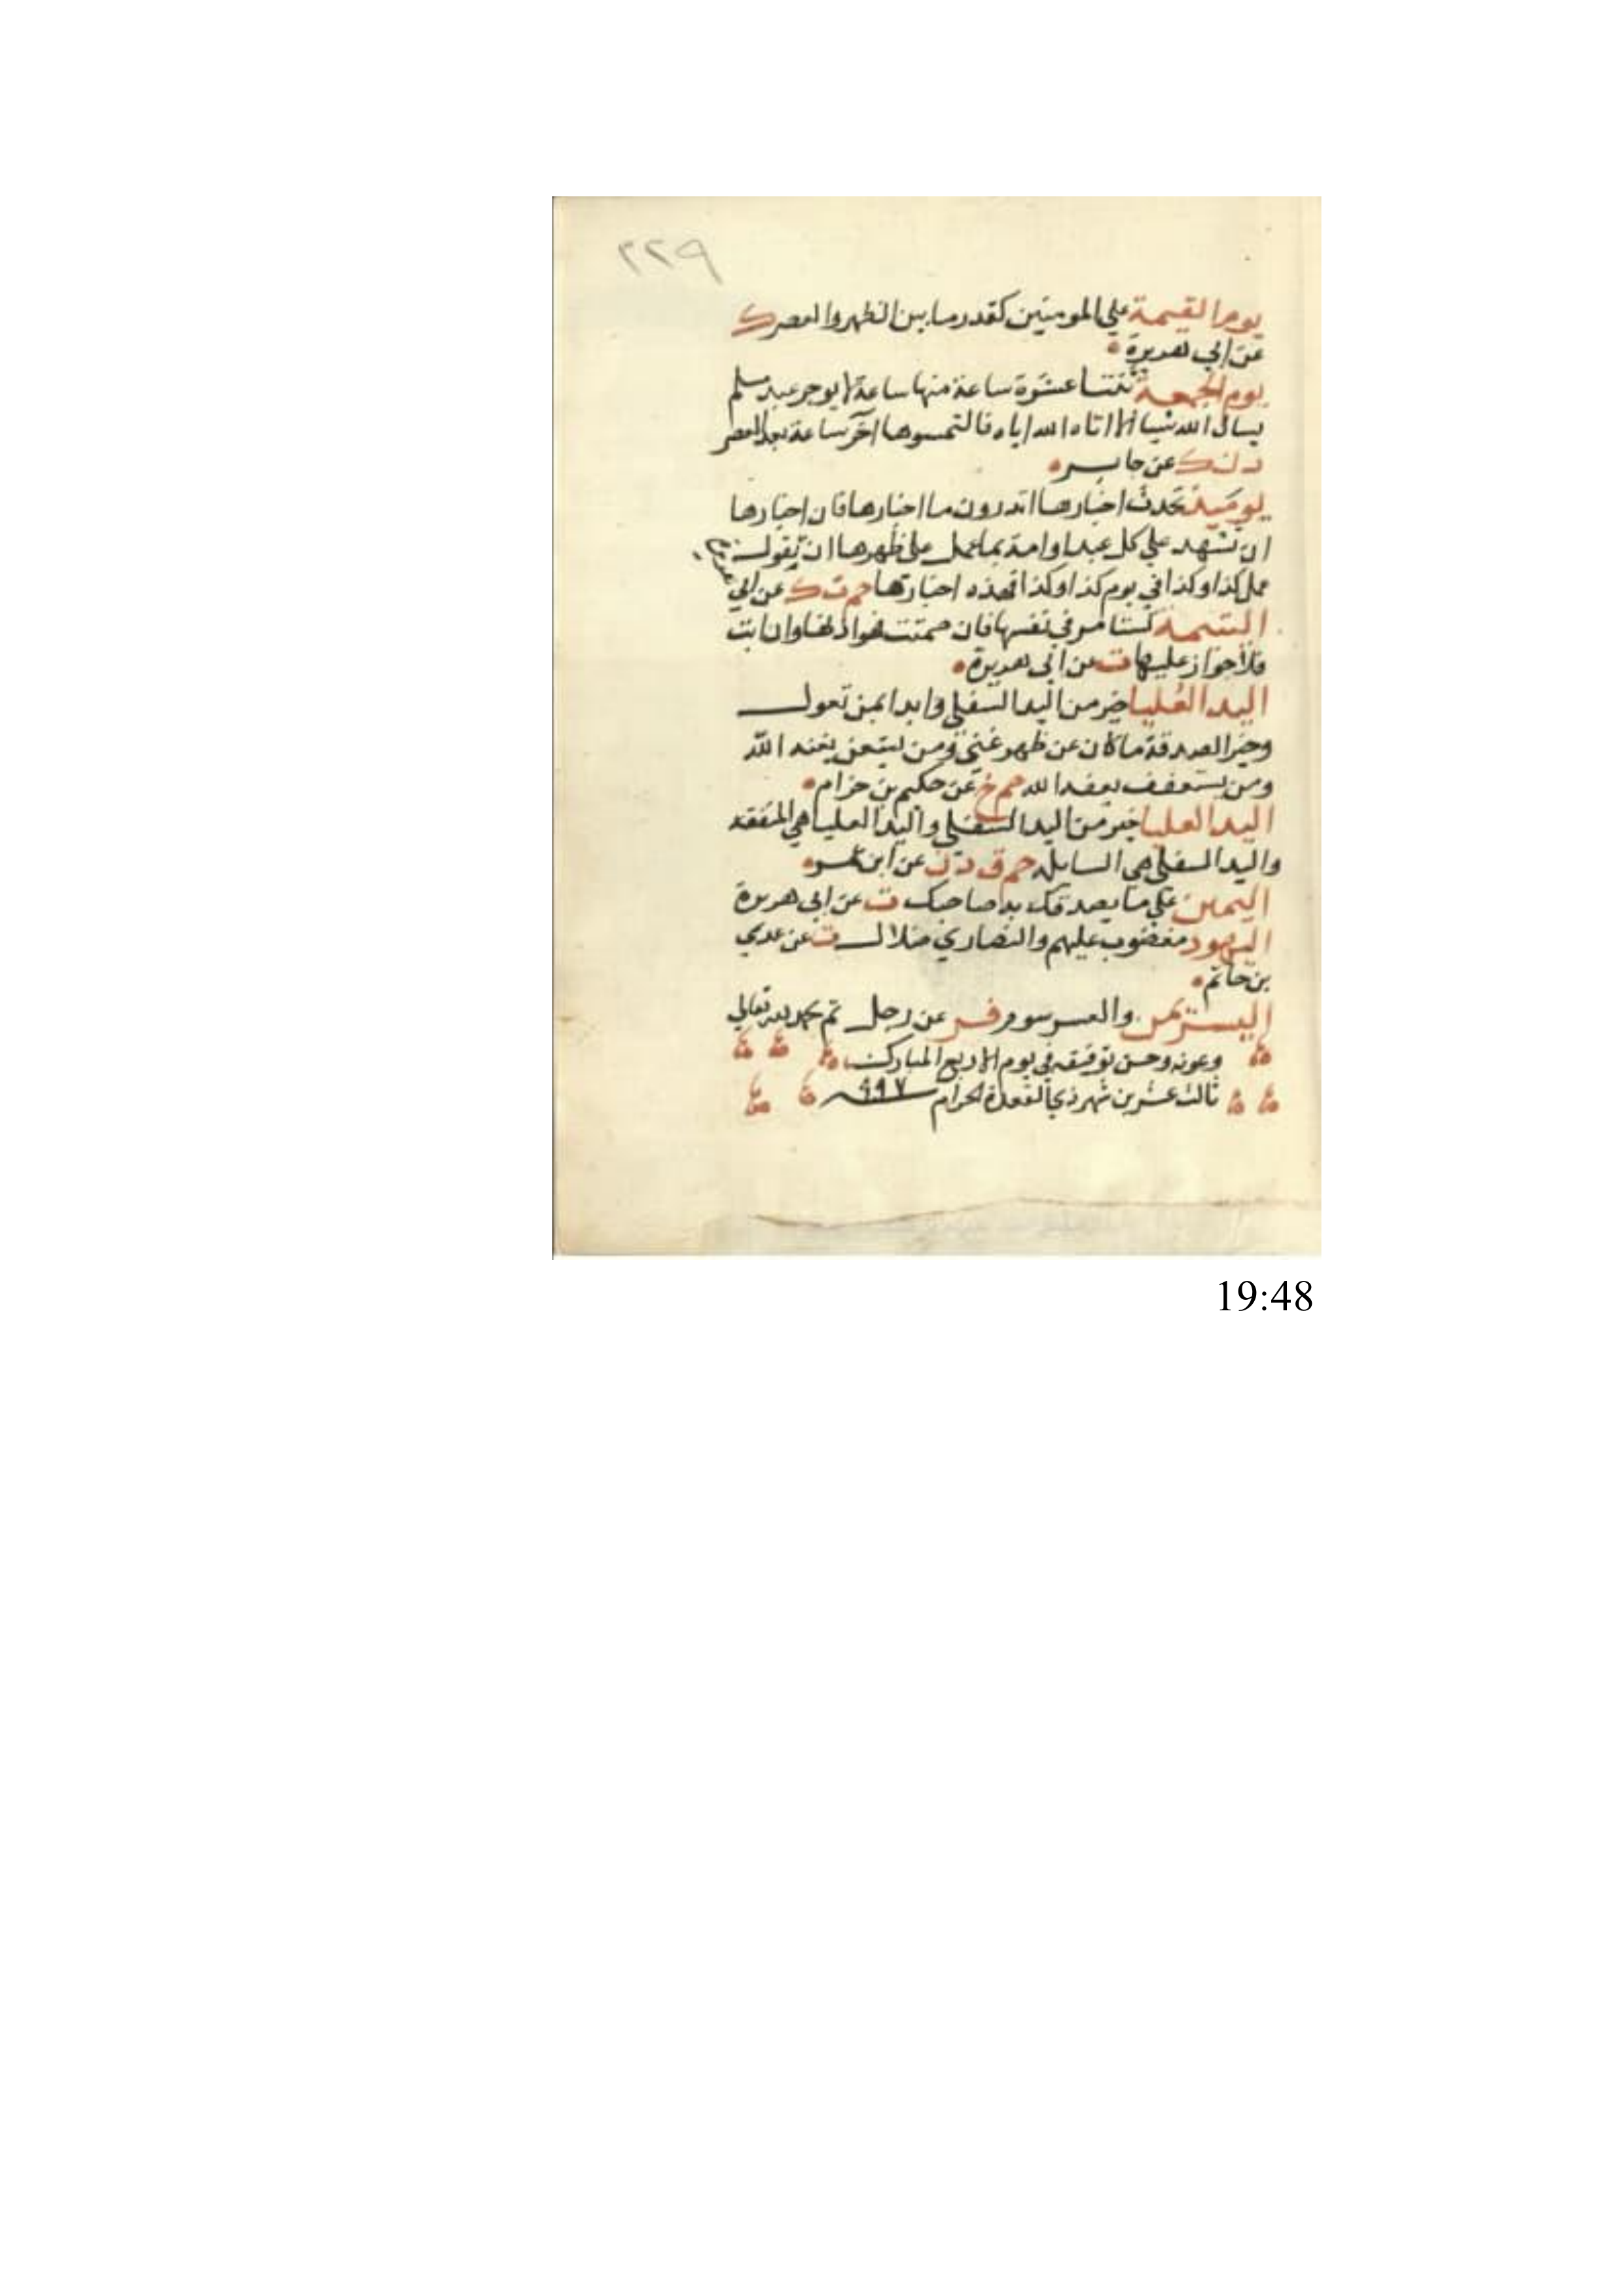 ٢٢٩
يوم القيمة علي المومنين كقدر ما بين الظهر والعصر ك
عن ابي هريرة
يوم الجمعة ثنتا عشرة ساعة منها ساعة لا يوجد عبد مسلم
يسال الله شيا الا اتاه الله اياه فالتمسوها آخر ساعة بعد العصر
د ن ك عن جابر
يوميذ تحدث اخبارها اتدرون ما اخبارها فان اخبارها
ان تشهد علي كل عبد او امة بما عمل على ظهرها ان تقول
عمل كذا وكذا في يوم كذا وكذا فهذه اخبارها حم ت ك عن ابي
اليتيمة تستامر في نفسها فان صمتت فهو اذنها وان ابت
فلا جواز عليها ت عن ابي هريرة
اليد العليا خير من اليد السفلي وابدا بمن تعول
وخير الصدقة ما كان عن ظهر غني ومن يستغن يغنه الله
ومن يستعفف يعفه الله حم خ عن حكيم بن حزام
اليد العليا خير من اليد السفلي واليد العليا هي المنفقه
واليد السفلي هي السايله حم ق د ن عن ابن عمر
اليمين علي ما يصدقك به صاحبك ت عن ابي هريرة
اليهود مغضوب عليهم والنصاري ضلال ت عن عدي
بن حاتم
اليسر يمن والعسر شوم فر عن رجل تم بحمد الله تعالي
وعونه وحسن توفيقه في يوم الاربع المبارك
ثالث عشرين شهر ذي القعدة الحرام ٩٩٧
19:48